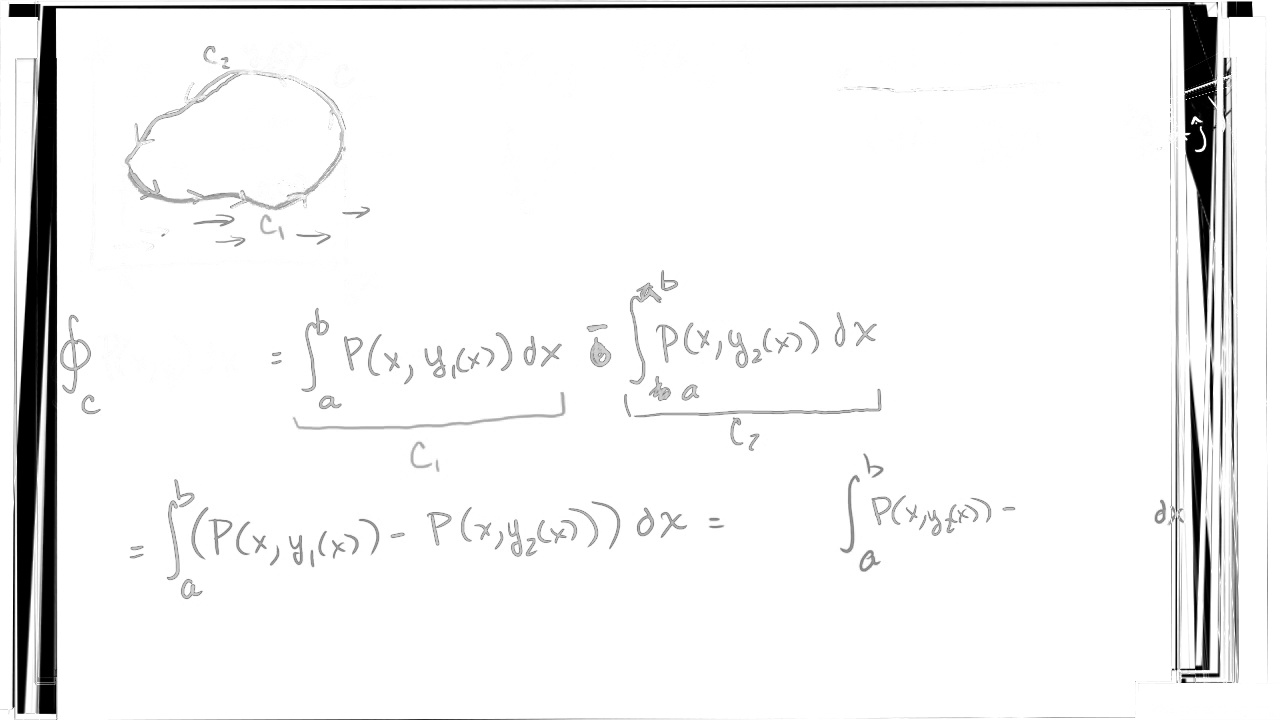 C₂
ĵ
C₁
∮_C = ∫_a^b P(x, y₁(x)) dx - ∫_a^b P(x, y₂(x)) dx
C₁ C₂
= ∫_a^b (P(x, y₁(x)) - P(x, y₂(x))) dx = ∫_a^b P(x, y₂(x)) - dx